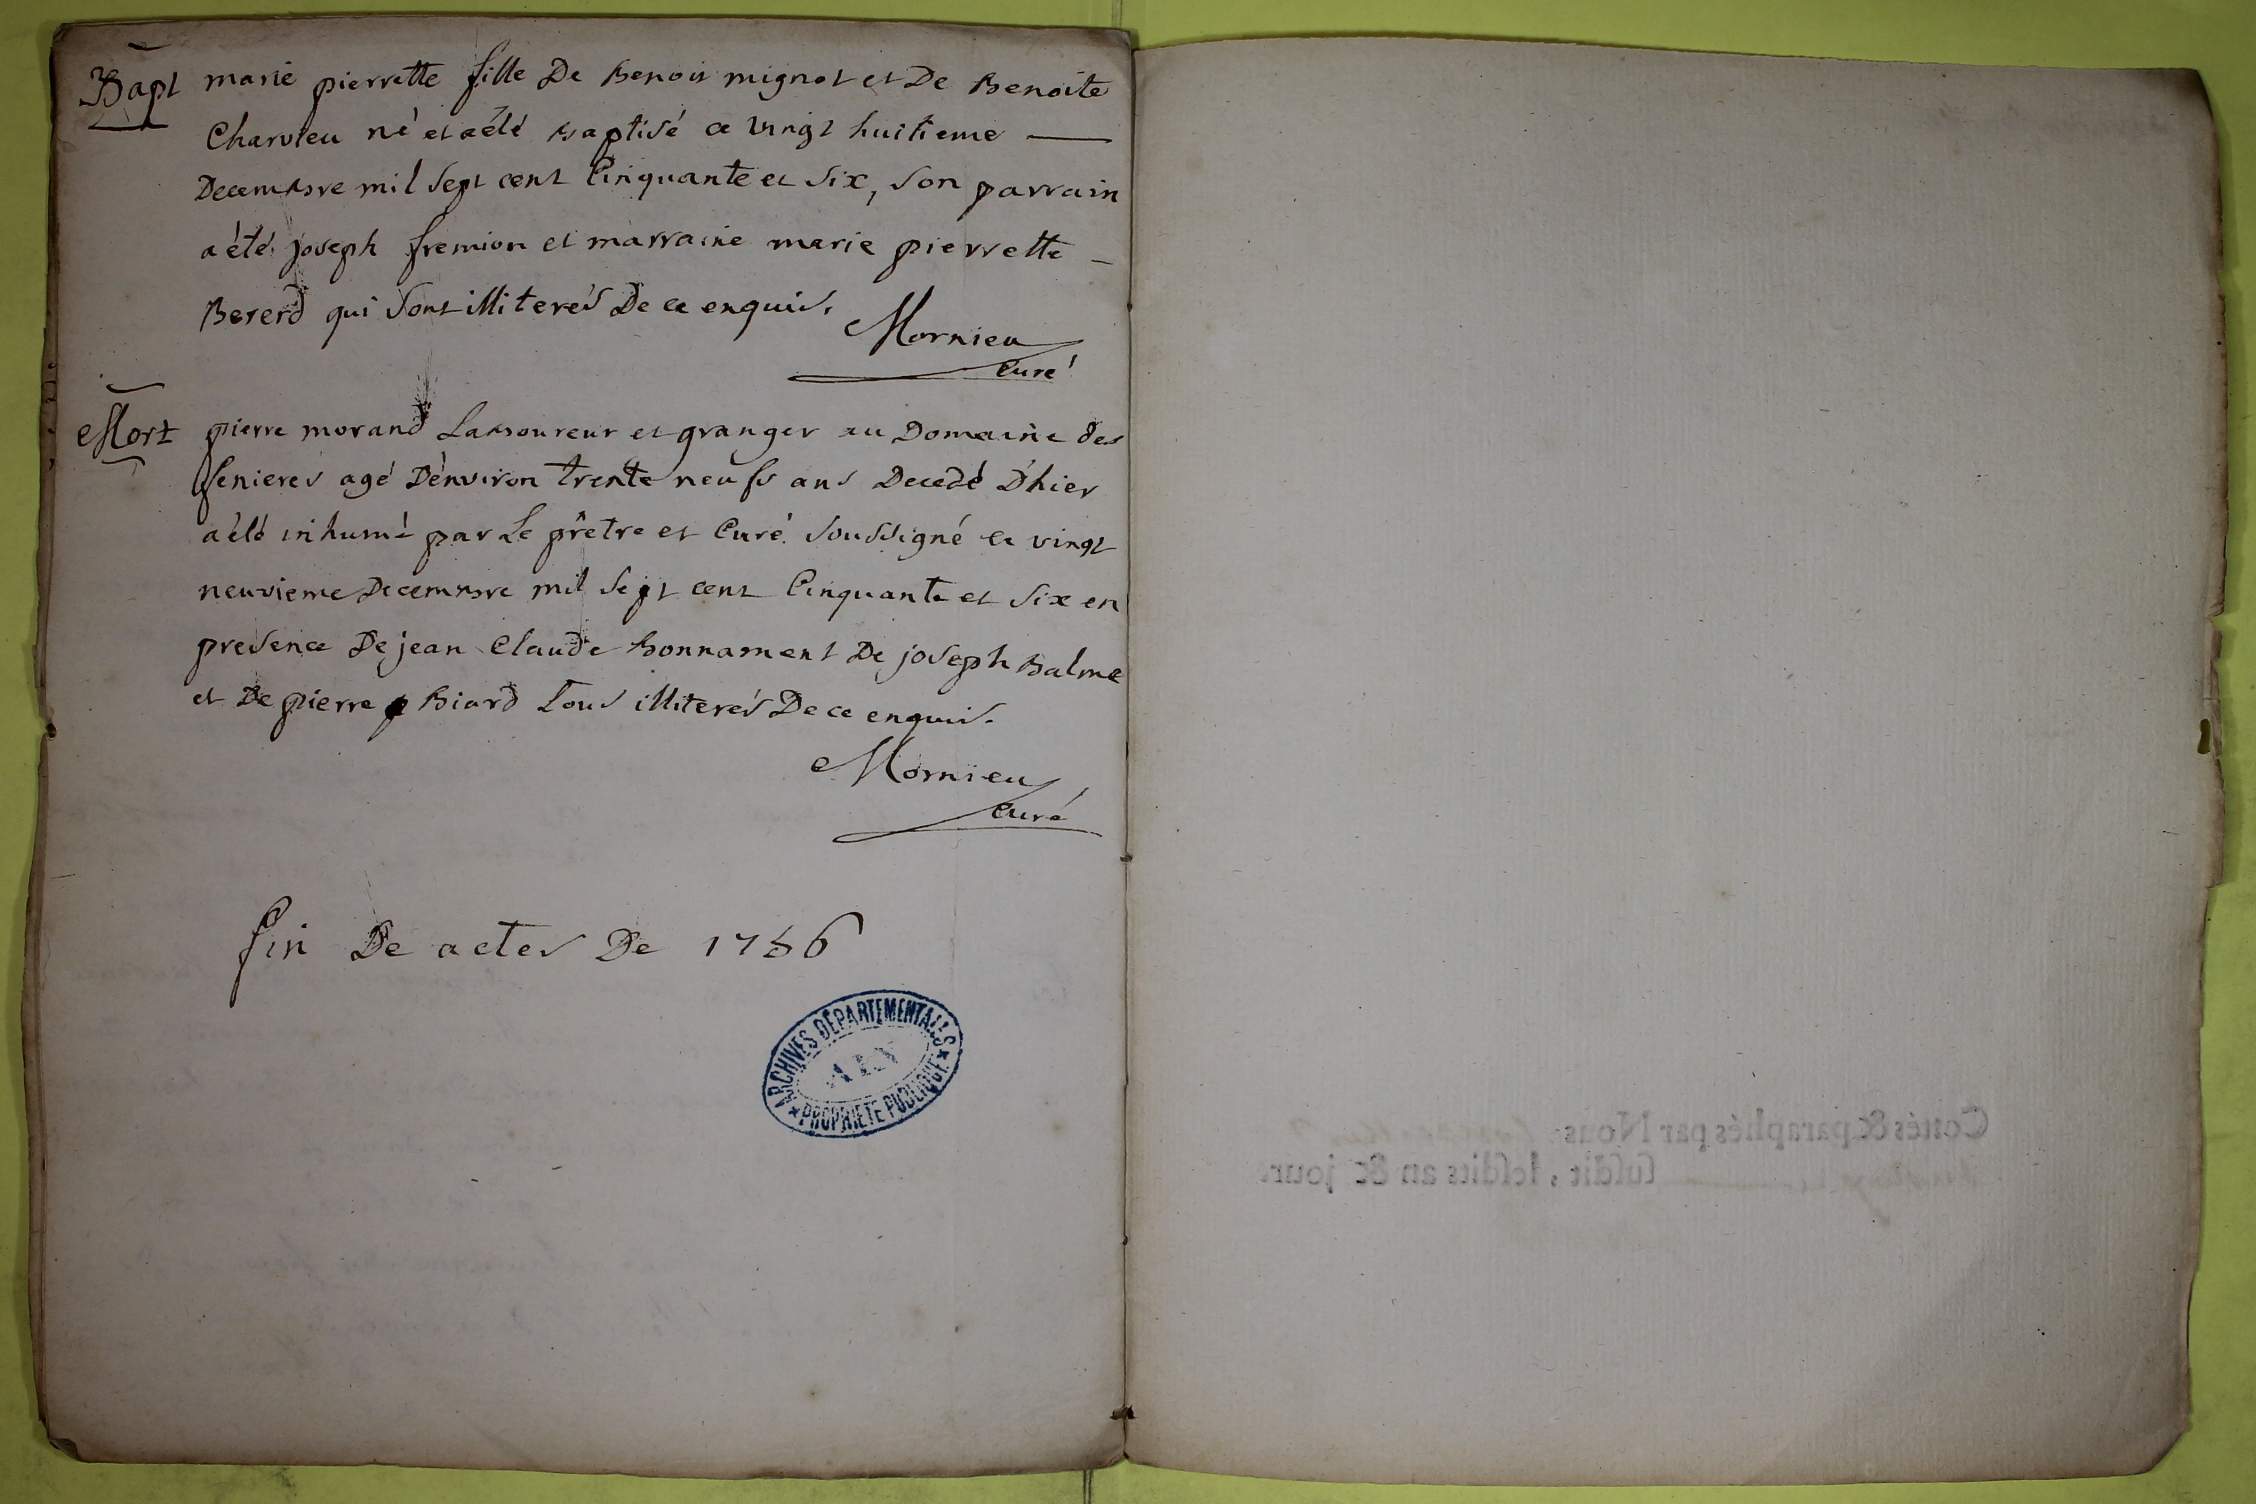 Bapt marie pierrette fille De Benoit mignot et De Benoite
Charvieu né et a été baptisé ce vingt huitieme
Decembre mil sept cent Cinquante et six, son parrain
a été joseph fremion et marraine marie pierrette
Bererd qui sont illiterés De ce enquis.
Mornieu
Curé
Mort pierre morand Laboureur et granger au Domaine des
fenieres agé D'environ trente neufs ans Decedé D'hier
a été inhumé par Le prêtre et Curé soussigné ce vingt
neuvieme Decembre mil sept cent Cinquante et six en
presence De jean Claude bonnament De joseph Balme
et De pierre Biard tous illiterés De ce enquis.
Mornieu
curé
fin De actes De 1756
ARCHIVES DÉPARTEMENTALES
AIN
PROPRIÉTÉ PUBLIQUE
Cottés & paraphés par Nous
susdit, lesdits an & jour.